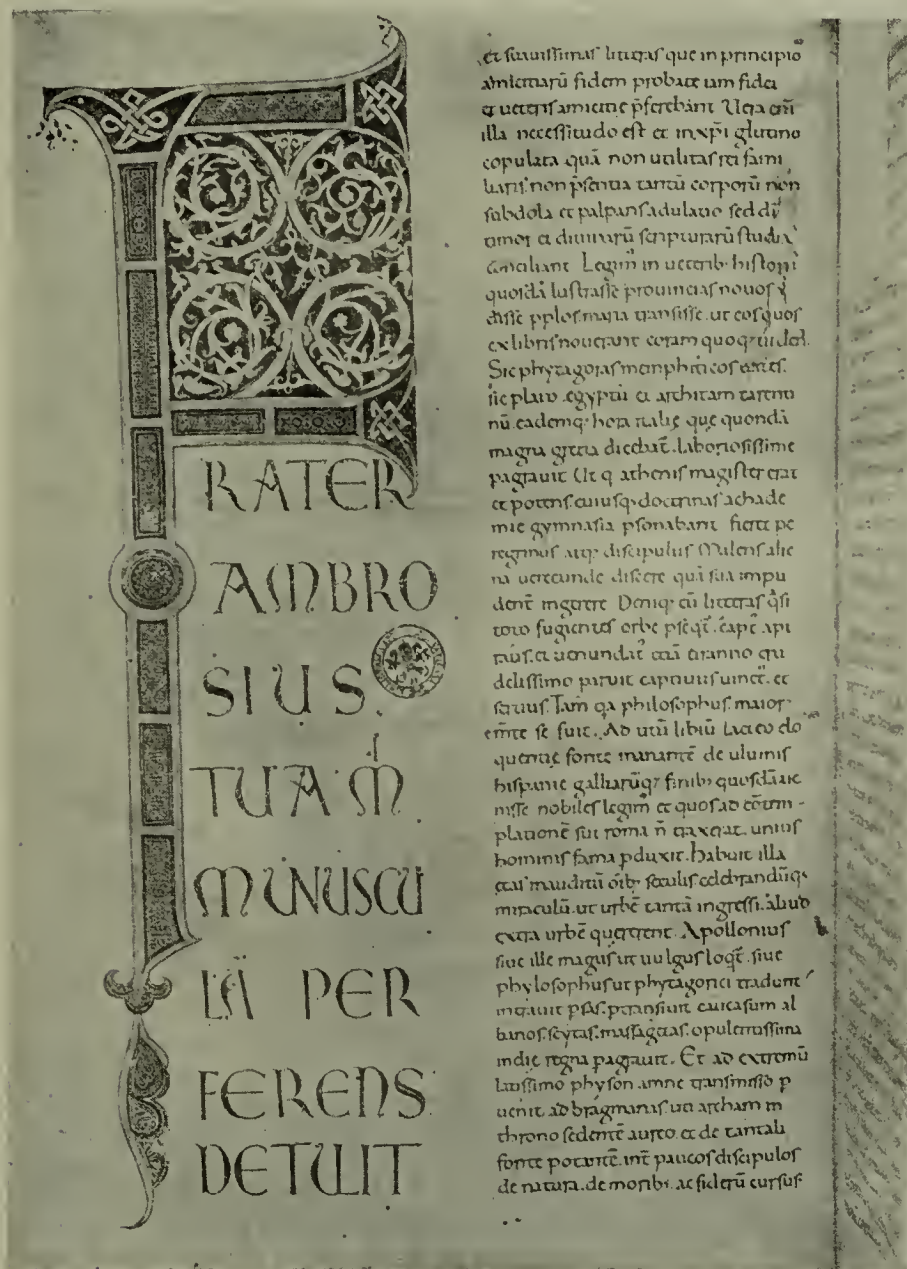 FRATER
AMBRO
SIUS.
TUA M̄
MUNUSCU
LA PER
FERENS
DETULIT
et suauissimas litteras que in principio
amicitiarū fidem probate iam fidei
et ueteris amicitie p̄ferebant Uera eni
illa necessitudo est et in xp̄i glutino
copulata quā non utilitas rei fami
liaris non p̄sentia tantū corporū non
subdola et palpans adulatio sed dī
timor et diuinarū scripturarū studia
conciliant Legim̄ in ueterib; historiis
quosdā lustrasse prouincias nouos
disse pplos. maria transisse. ut eos quos
ex libris nouerant coram quoq; uiderent.
Sic phytagoras memphiticos uates.
sic plato. egyptū et architam tarenti
nū. eademq; hora italie que quondā
magna grecia dicebat. laboriosissime
pagrauit Ut q athenis magister erat
et potens. cuiusq; doctrinas achade
mie gymnasia psonabant fieret pe
regrinus atq; discipulus Malens alie
na uerecunde discere quā sua impu
dent̄ ingerere Deniq; cū litteras q̄si
toto fugientes orbe pseqt̄. capt̄ a pi
ratis. et uenundat̄ etiā tiranno cru
delissimo paruit captiuus uinct̄. et
seruus. Tam̄ qa philosophus. maior
emte se fuit. Ad titū libiū lacteo elo
quentie fonte manantē de ultimis
hispanie galliarūq; finib; quosdā ue
nisse nobiles legim̄ et quos ad cōtem-
plationē sui roma n̄ traxerat. unius
hominis fama pduxit. habuit illa
etas inauditū oīb; seculis celebrandūq;
miraculū. ut urbē tantā ingressi. aliud
extra urbē quererent. Apollonius
siue ille magus ut uulgus loqt̄. siue
phylosophus ut phytagorici tradunt
intrauit psas. ptransiuit caucasum al
banos. scytas. massagetas. opulentissima
indie regna pagrauit. Et ad extremū
latissimo physon amne transmisso p
uenit ad bragmanas. uti archam in
throno sedentē aureo. et de tantali
fonte potantē. int̄ paucos discipulos
de natura. de morib; ac siderū cursus